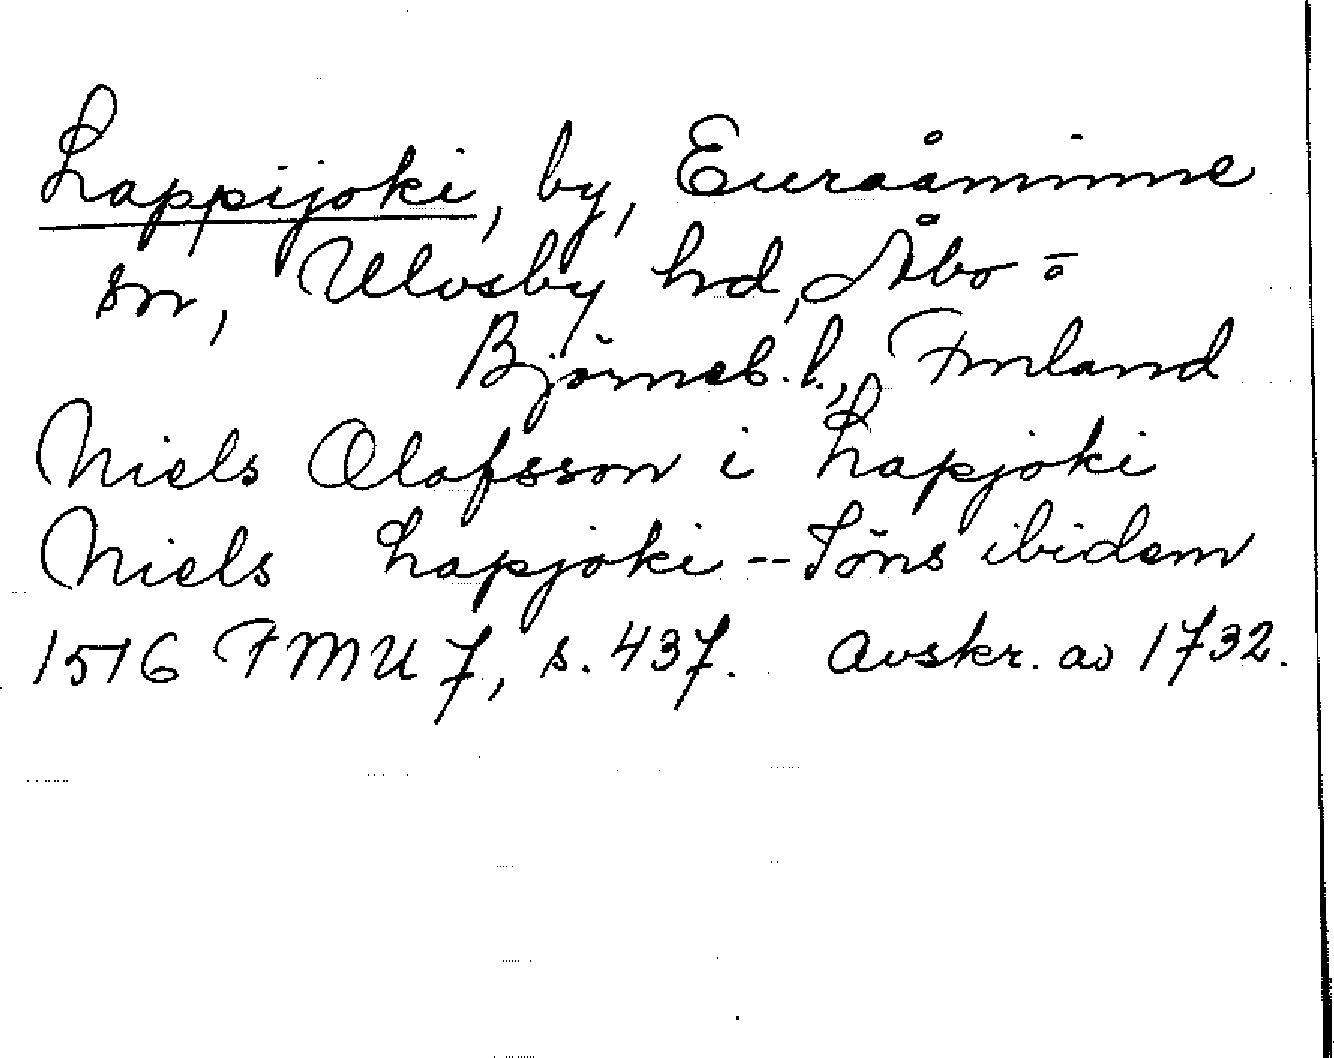 Lappijoki, by, Euraåminne
sn, Ulvsby hd, Åbo-o
Björneb. l., Finland
Niels Olafsson i Lapjoki
Niels Lapjoki -- Töns ibidem
1516 FMU 7, s. 437. Avskr. av 1732.